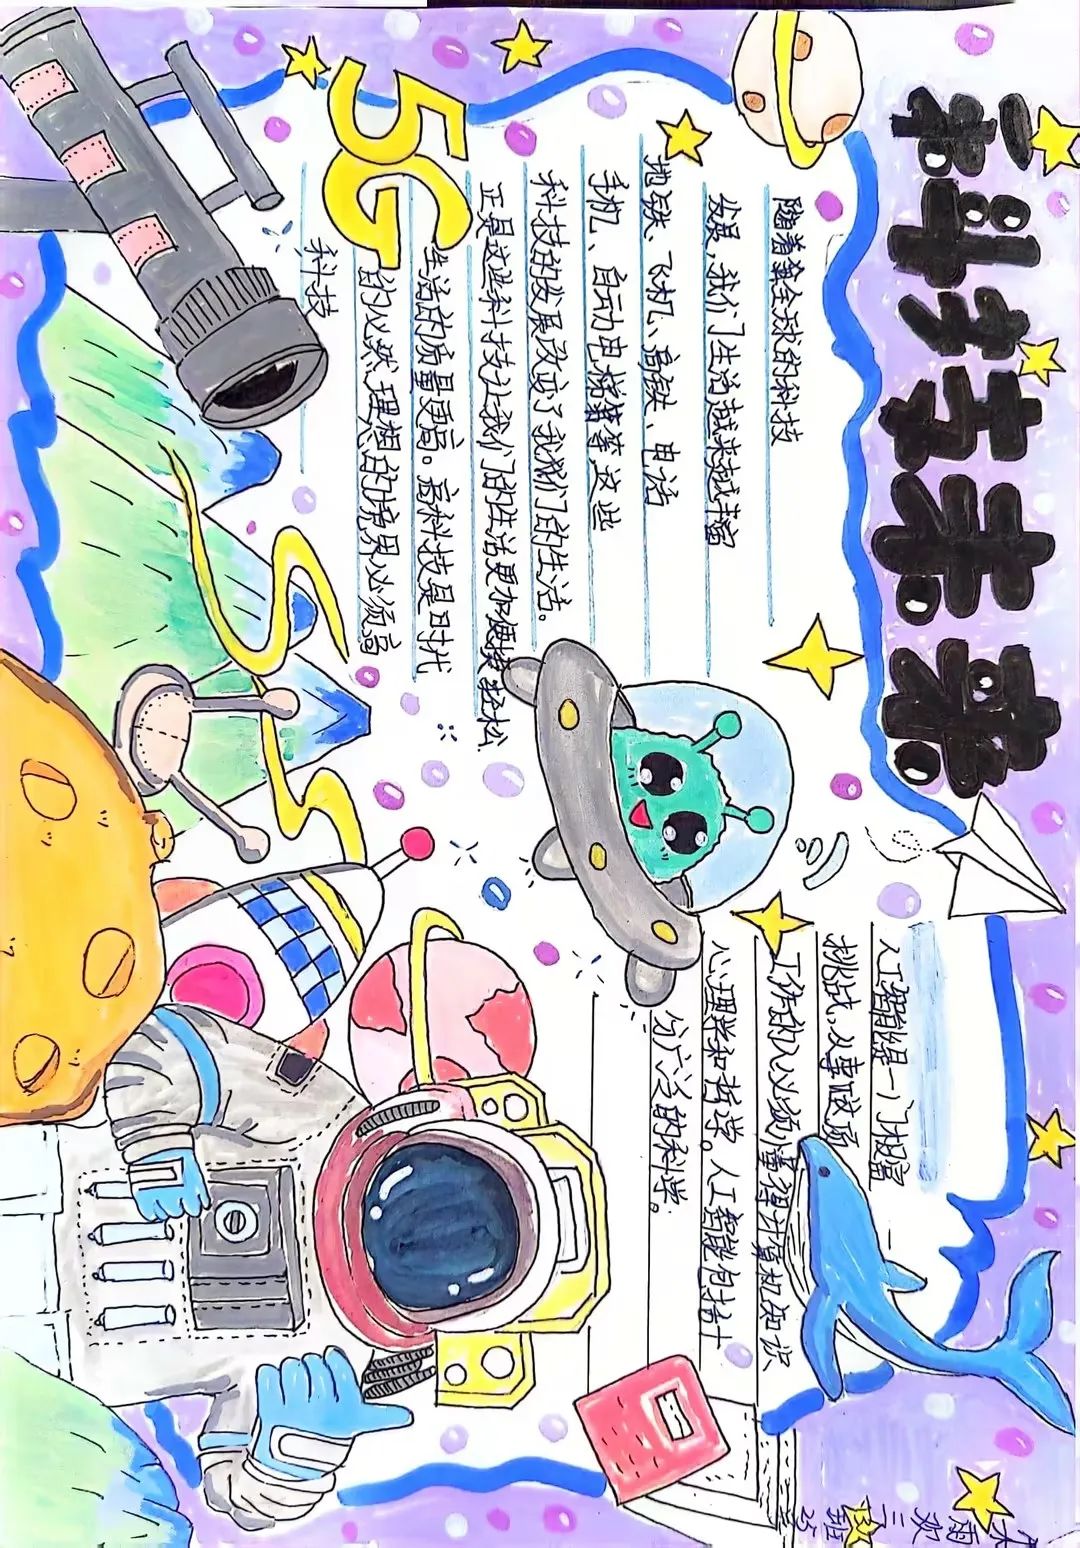 科技未来
随着全球的科技
发展,我们生活越来越丰富
地铁、飞机、高铁、电话
手机、自动电梯等等这些
科技的发展改变了我们的生活。
正是这些科技让我们的生活更加便捷轻松
5G
生活的质量更高。高科技是时代
的必然,理想的境界必须高
科技
人工智能是一门极富
挑战,从事
工作的人必须懂得计算机知识
心理学和哲学。人工智能包括十
分广泛的科学。